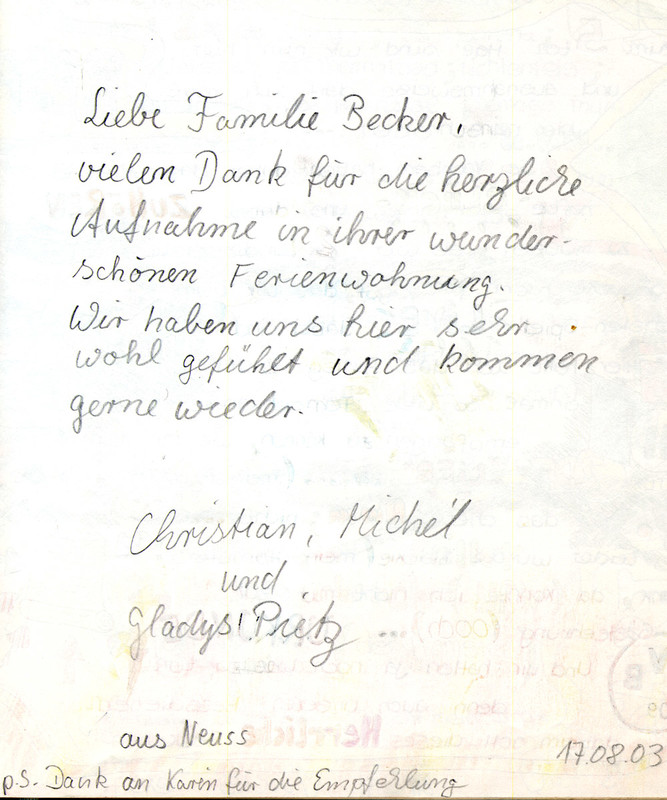 Liebe Familie Becker,
vielen Dank für die herzliche
Aufnahme in ihrer wunder-
schönen Ferienwohnung.
Wir haben uns hier sehr
wohl gefühlt und kommen
gerne wieder.
Christian, Michél
und
Gladys Pretz
aus Neuss
17.08.03
p.S. Dank an Karin für die Empfehlung